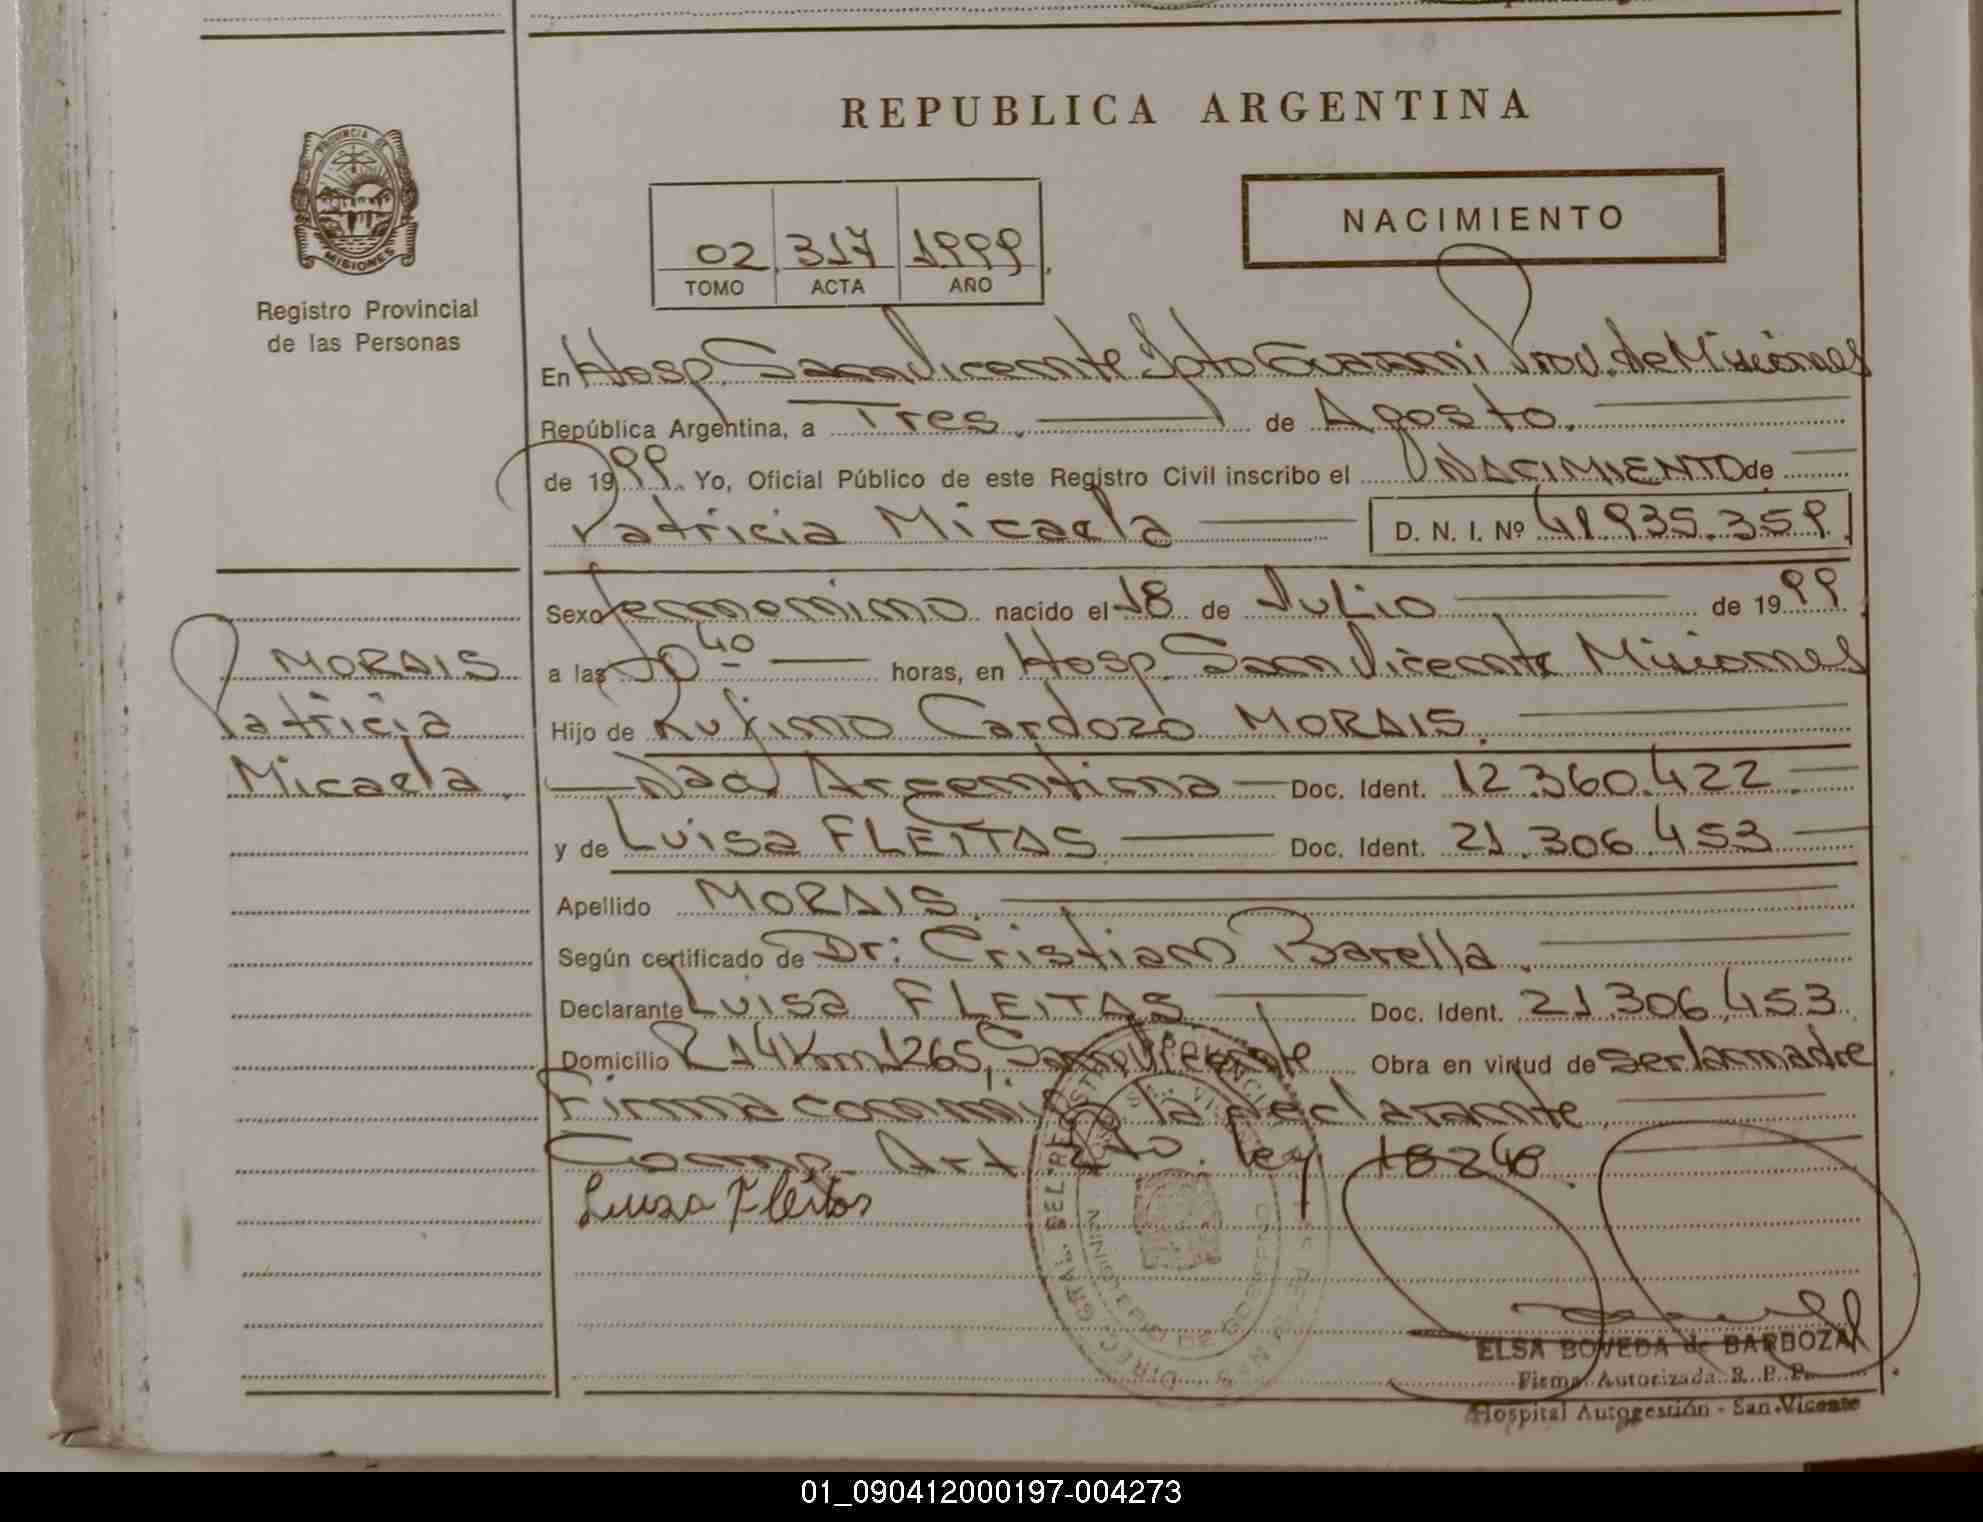 REPUBLICA ARGENTINA
PROVINCIA DE
MISIONES
Registro Provincial
de las Personas
NACIMIENTO
02 317 1999
TOMO ACTA AÑO
En Hosp. San Vicente Dpto Guarani Prov. de Misiones
República Argentina, a Tres. de Agosto.
de 1999. Yo, Oficial Público de este Registro Civil inscribo el NACIMIENTO de
Patricia Micaela D. N. I. Nº 41.935.359.
Sexo femenino nacido el 18 de Julio de 1999.
a las 10 40 horas, en Hosp. San Vicente Misiones
Hijo de Rufino Cardozo MORAIS.
Nac. Argentina Doc. Ident. 12.360.422.
y de Luisa FLEITAS Doc. Ident. 21.306.453
Apellido MORAIS.
Según certificado de Dr: Cristian Barella.
Declarante Luisa FLEITAS Doc. Ident. 21.306.453.
Domicilio R 14 Km 1265, San Vicente Obra en virtud de ser la madre
Firma conmigo la declarante
Comp. Art. 2do. ley 18248.
Luisa Fleitas
MORAIS
Patricia
Micaela.
ELSA BOVEDA de BARBOZA
Firma Autorizada R. P. P.
Hospital Autogestión - San Vicente
01_090412000197-004273